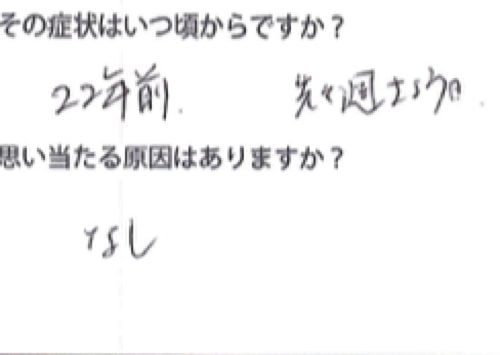 その症状はいつ頃からですか？
22年前. 先々週
思い当たる原因はありますか？
なし